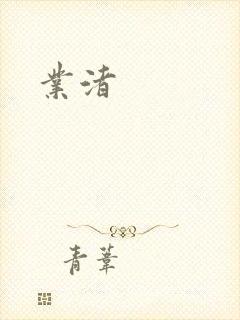 業渚
青葦